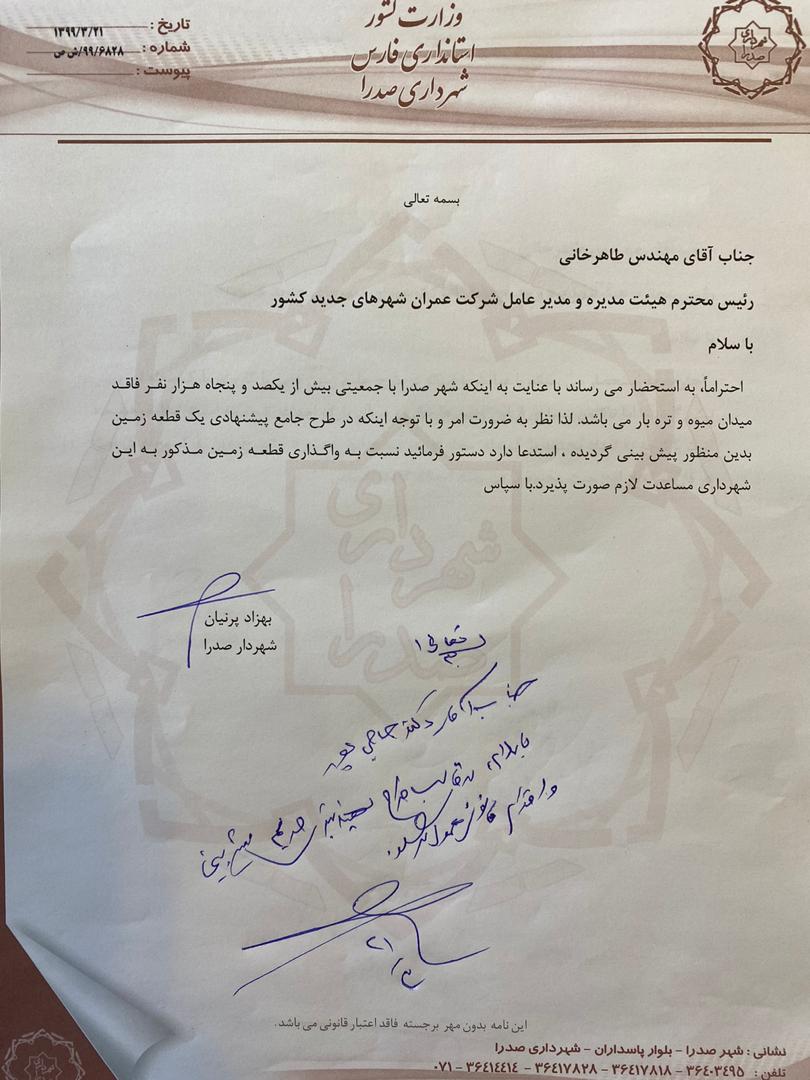 وزارت کشور
استانداری فارس
شهرداری صدرا
تاریخ : ۱۳۹۹/۳/۲۱
شماره : ۹۹/۶۸۲۸/ش ص
پیوست :
شهرداری صدرا
بسمه تعالی
جناب آقای مهندس طاهرخانی
رئیس محترم هیئت مدیره و مدیر عامل شرکت عمران شهرهای جدید کشور
با سلام
احتراماً، به استحضار می رساند با عنایت به اینکه شهر صدرا با جمعیتی بیش از یکصد و پنجاه هزار نفر فاقد
میدان میوه و تره بار می باشد. لذا نظر به ضرورت امر و با توجه اینکه در طرح جامع پیشنهادی یک قطعه زمین
بدین منظور پیش بینی گردیده ، استدعا دارد دستور فرمائید نسبت به واگذاری قطعه زمین مذکور به این
شهرداری مساعدت لازم صورت پذیرد.با سپاس
بهزاد پرنیان
شهردار صدرا
بسمه تعالی
جناب آقای دکتر حاجی پور
و اقدام قانونی معمول
این نامه بدون مهر برجسته فاقد اعتبار قانونی می باشد.
نشانی : شهر صدرا - بلوار پاسداران - شهرداری صدرا
تلفن : ۳۶۴۰۳۴۹۵ - ۳۶۴۱۷۸۱۸ - ۳۶۴۱۷۸۲۸ - ۳۶۴۱۴۴۱۴ - ۰۷۱